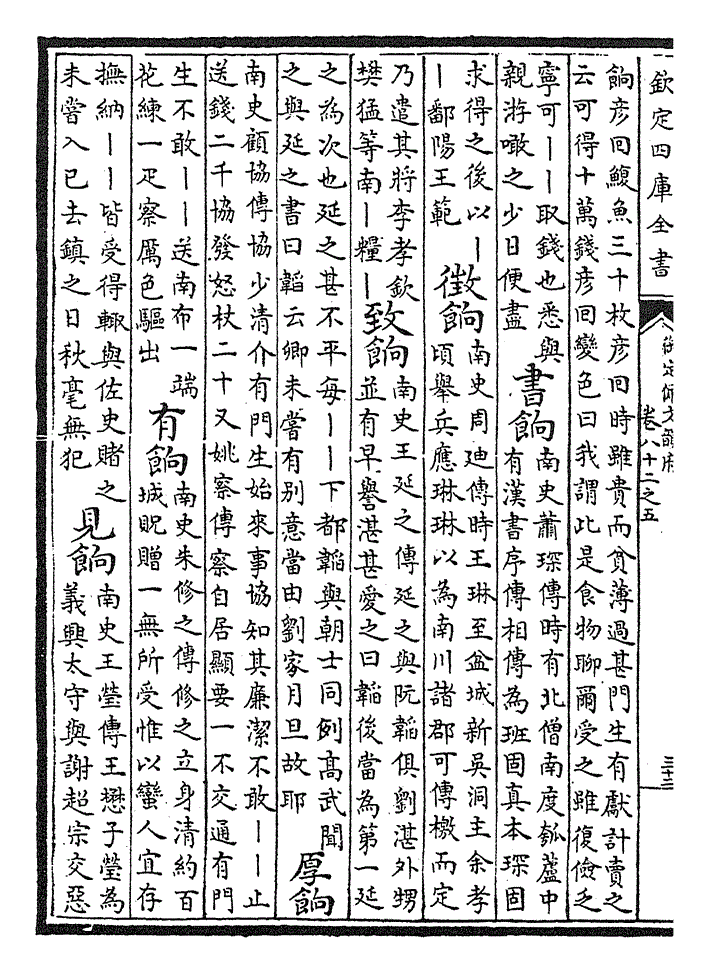 欽定四庫全書
御定佩文韻府
卷八十二之五
三十二
餉彦回鰒魚三十枚彦回時雖貴而貧薄過甚門生有獻計賣之
云可得十萬錢彦回變色曰我謂此是食物聊爾受之雖復儉乏
寧可丨丨取錢也悉與
親游噉之少日便盡
書餉
南史蕭琛傳時有北僧南度瓠蘆中
有漢書序傳相傳為班固真本琛固
求得之後以丨
丨鄱陽王範
徵餉
南史周迪傳時王琳至盆城新吳洞主余孝
頃舉兵應琳琳以為南川諸郡可傳檄而定
乃遣其將李孝欽
樊猛等南丨糧丨
致餉
南史王延之傳延之與阮韜俱劉湛外甥
並有早譽湛甚愛之曰韜後當為第一延
之為次也延之甚不平每丨丨下都韜與朝士同例髙武聞
之與延之書曰韜云卿未嘗有別意當由劉家月旦故耶
厚餉
南史顧協傳協少清介有門生始來事協知其廉潔不敢丨丨止
送錢二千協發怒杖二十又姚察傳察自居顯要一不交通有門
生不敢丨丨送南布一端
花練一疋察厲色驅出
有餉
南史朱修之傳修之立身清約百
城貺贈一無所受惟以蠻人宜存
撫納丨丨皆受得輙與佐史賭之
未嘗入已去鎮之日秋毫無犯
見餉
南史王瑩傳王懋子瑩為
義興太守與謝超宗交惡